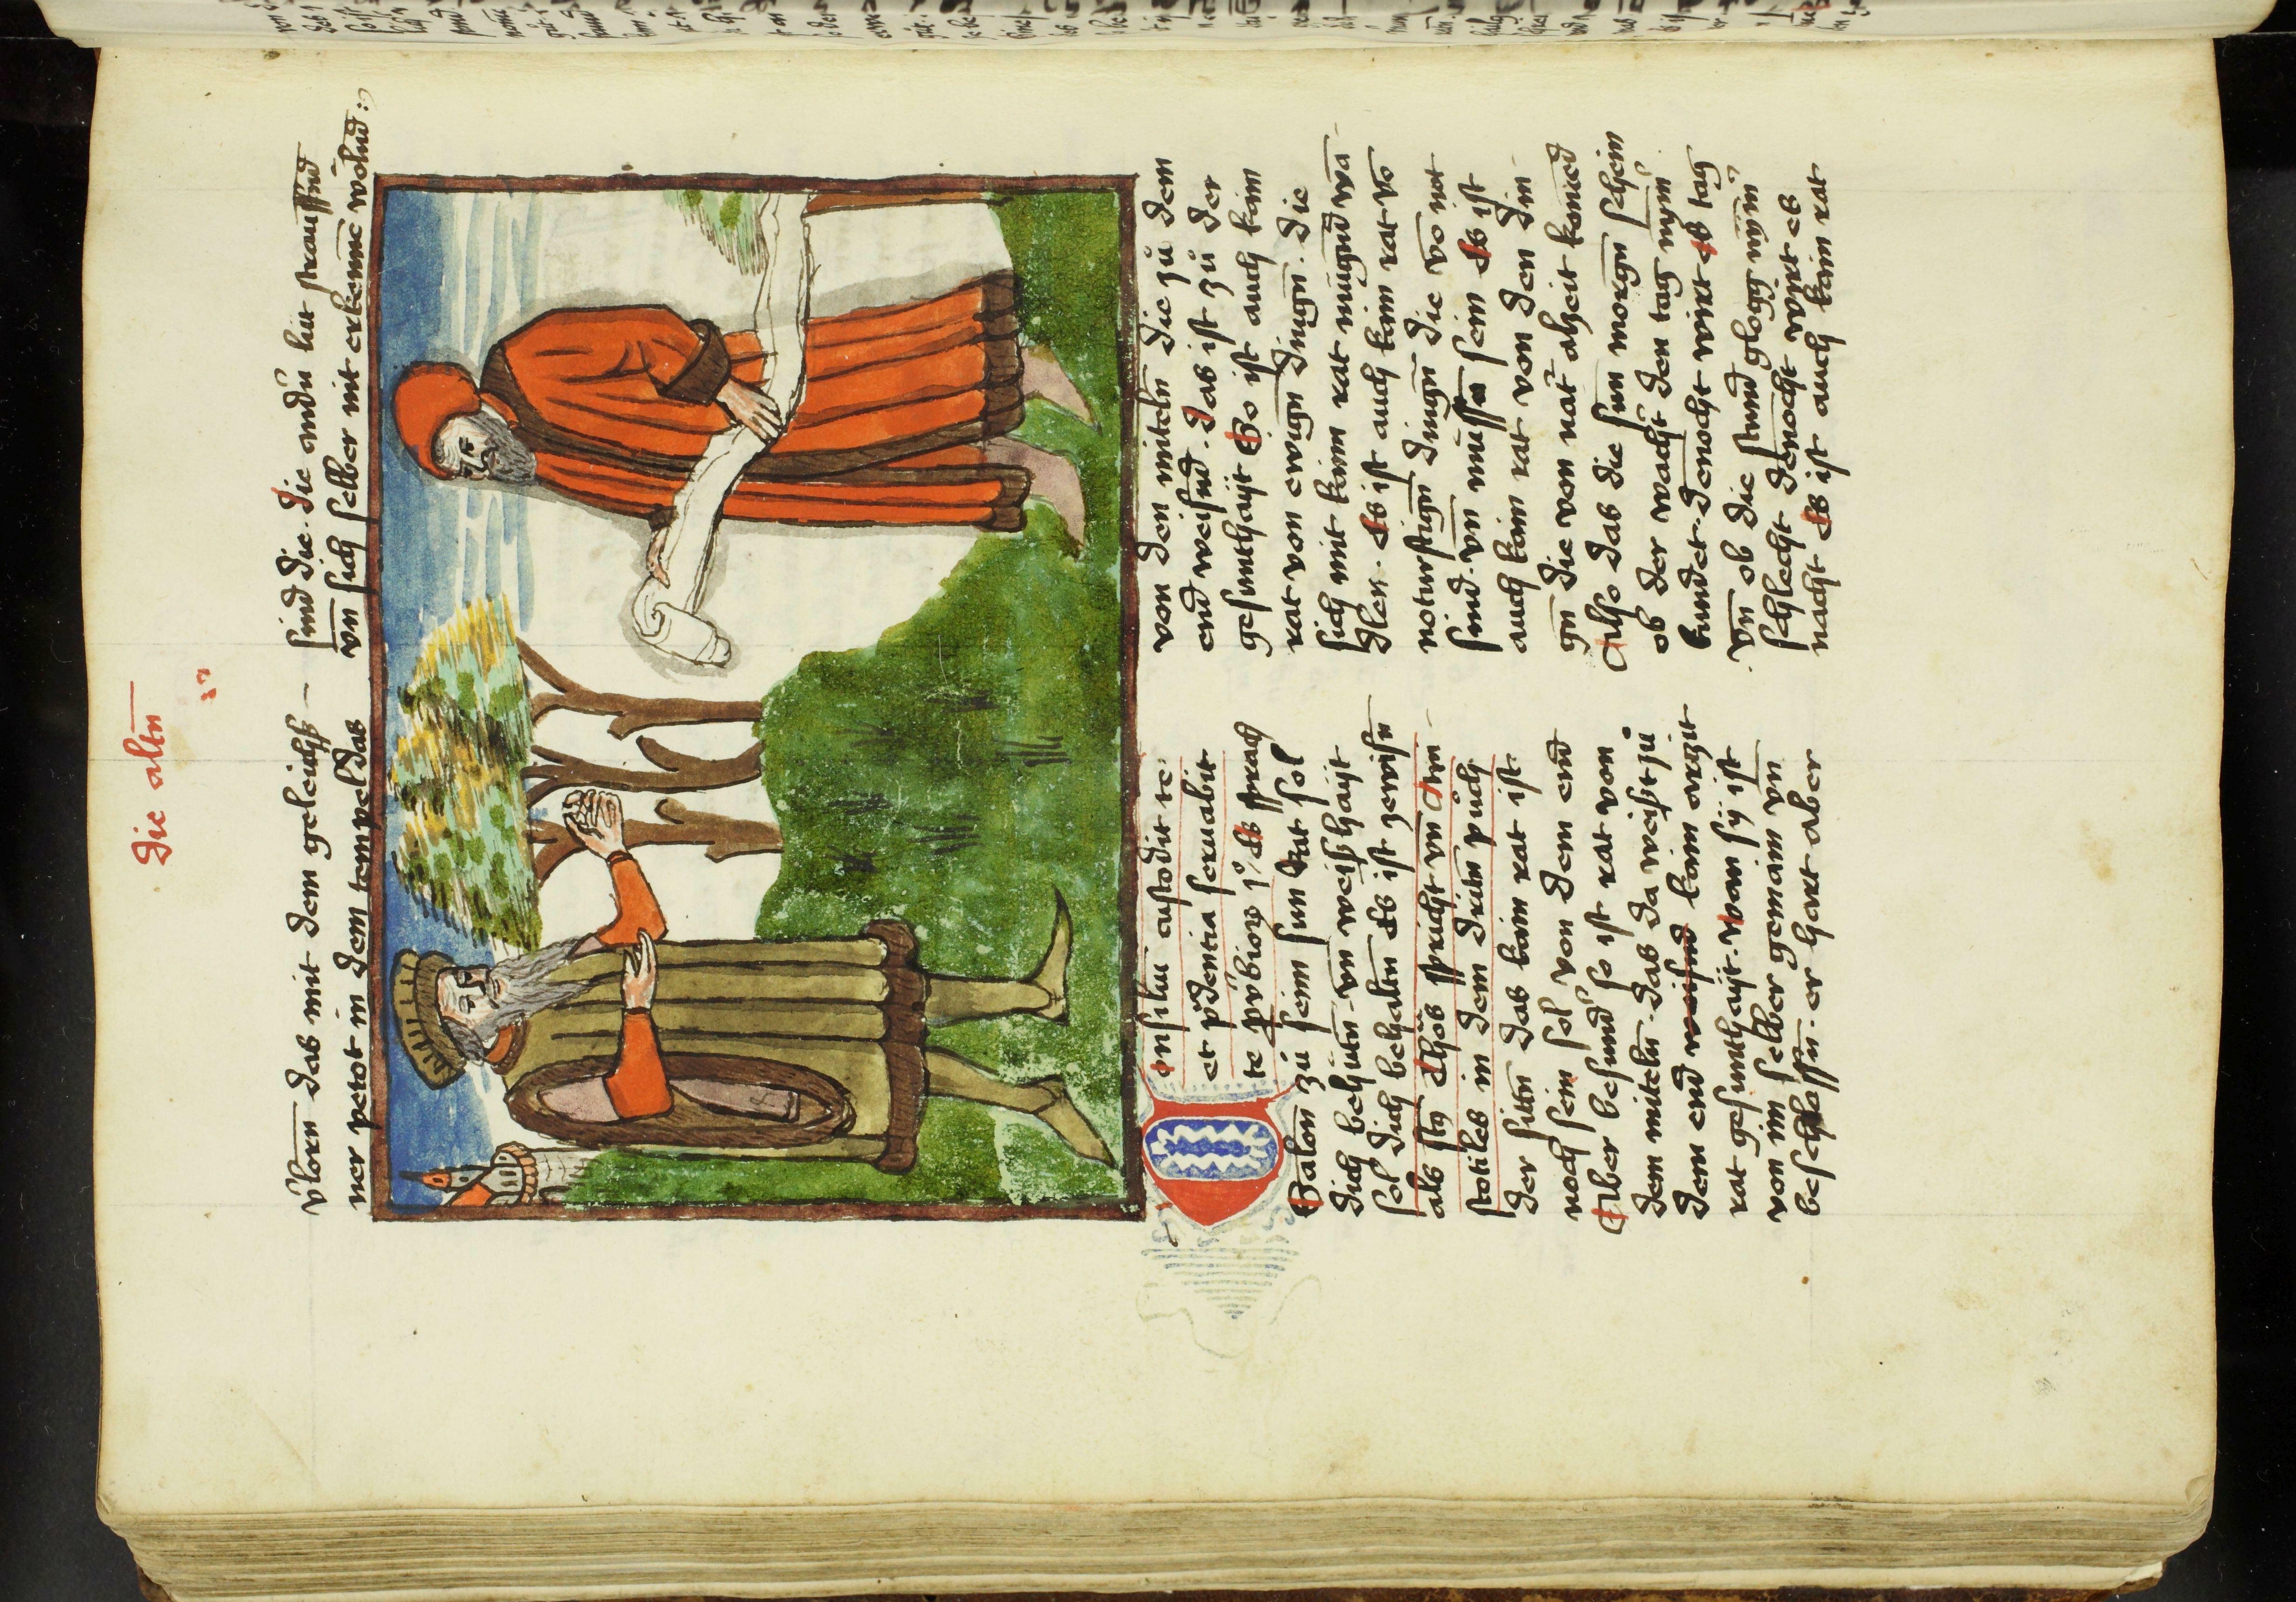 Die altn̄
v̓lorn das mit dem geleichß
ner petot in dem tempel das
sind die · die andn̄ lüt strauffnd
vn̄ sich selber nit erkenne wolnd :
Consiliū custodit te
et pͬdentia seruabit
te
sprach
Salon zů seim sun Rat sol
dich behütn · vn̄ weißhayt
sol dich behaltn Es ist zewisn
als spricht vn̄ Ari
stotiles in dem dritn půch
der sittn das kain rat ist
noch sein sol von dem end
Aber besund̓ so ist rat von
dem miteln · das da weißt zů
dem end kain arzat
rat gesunthayt · wan sy ist
von im selber gemain vn̄
beschaffn · er hart aber
von den miteln die zů dem
end weisnd · das ist zů der
gesunthayt So ist auch kain
rat von ewign dingn · die
sich mit kaim rat mügnd wā
dlen · Es ist auch kain rat vō
noturftign dingn die vō not
sind · vn̄ müssn sein Es ist
auch kain rat von den din
gn die von nat̓ alheit komēd
Also das die sun morgn schein
ob der wacht̓ den tag nym̓
kundet · denocht wirt Es tag
vn̄ ob die stund glogg nym̓
schlecht denocht wirt es
nacht Es ist auch kain rat